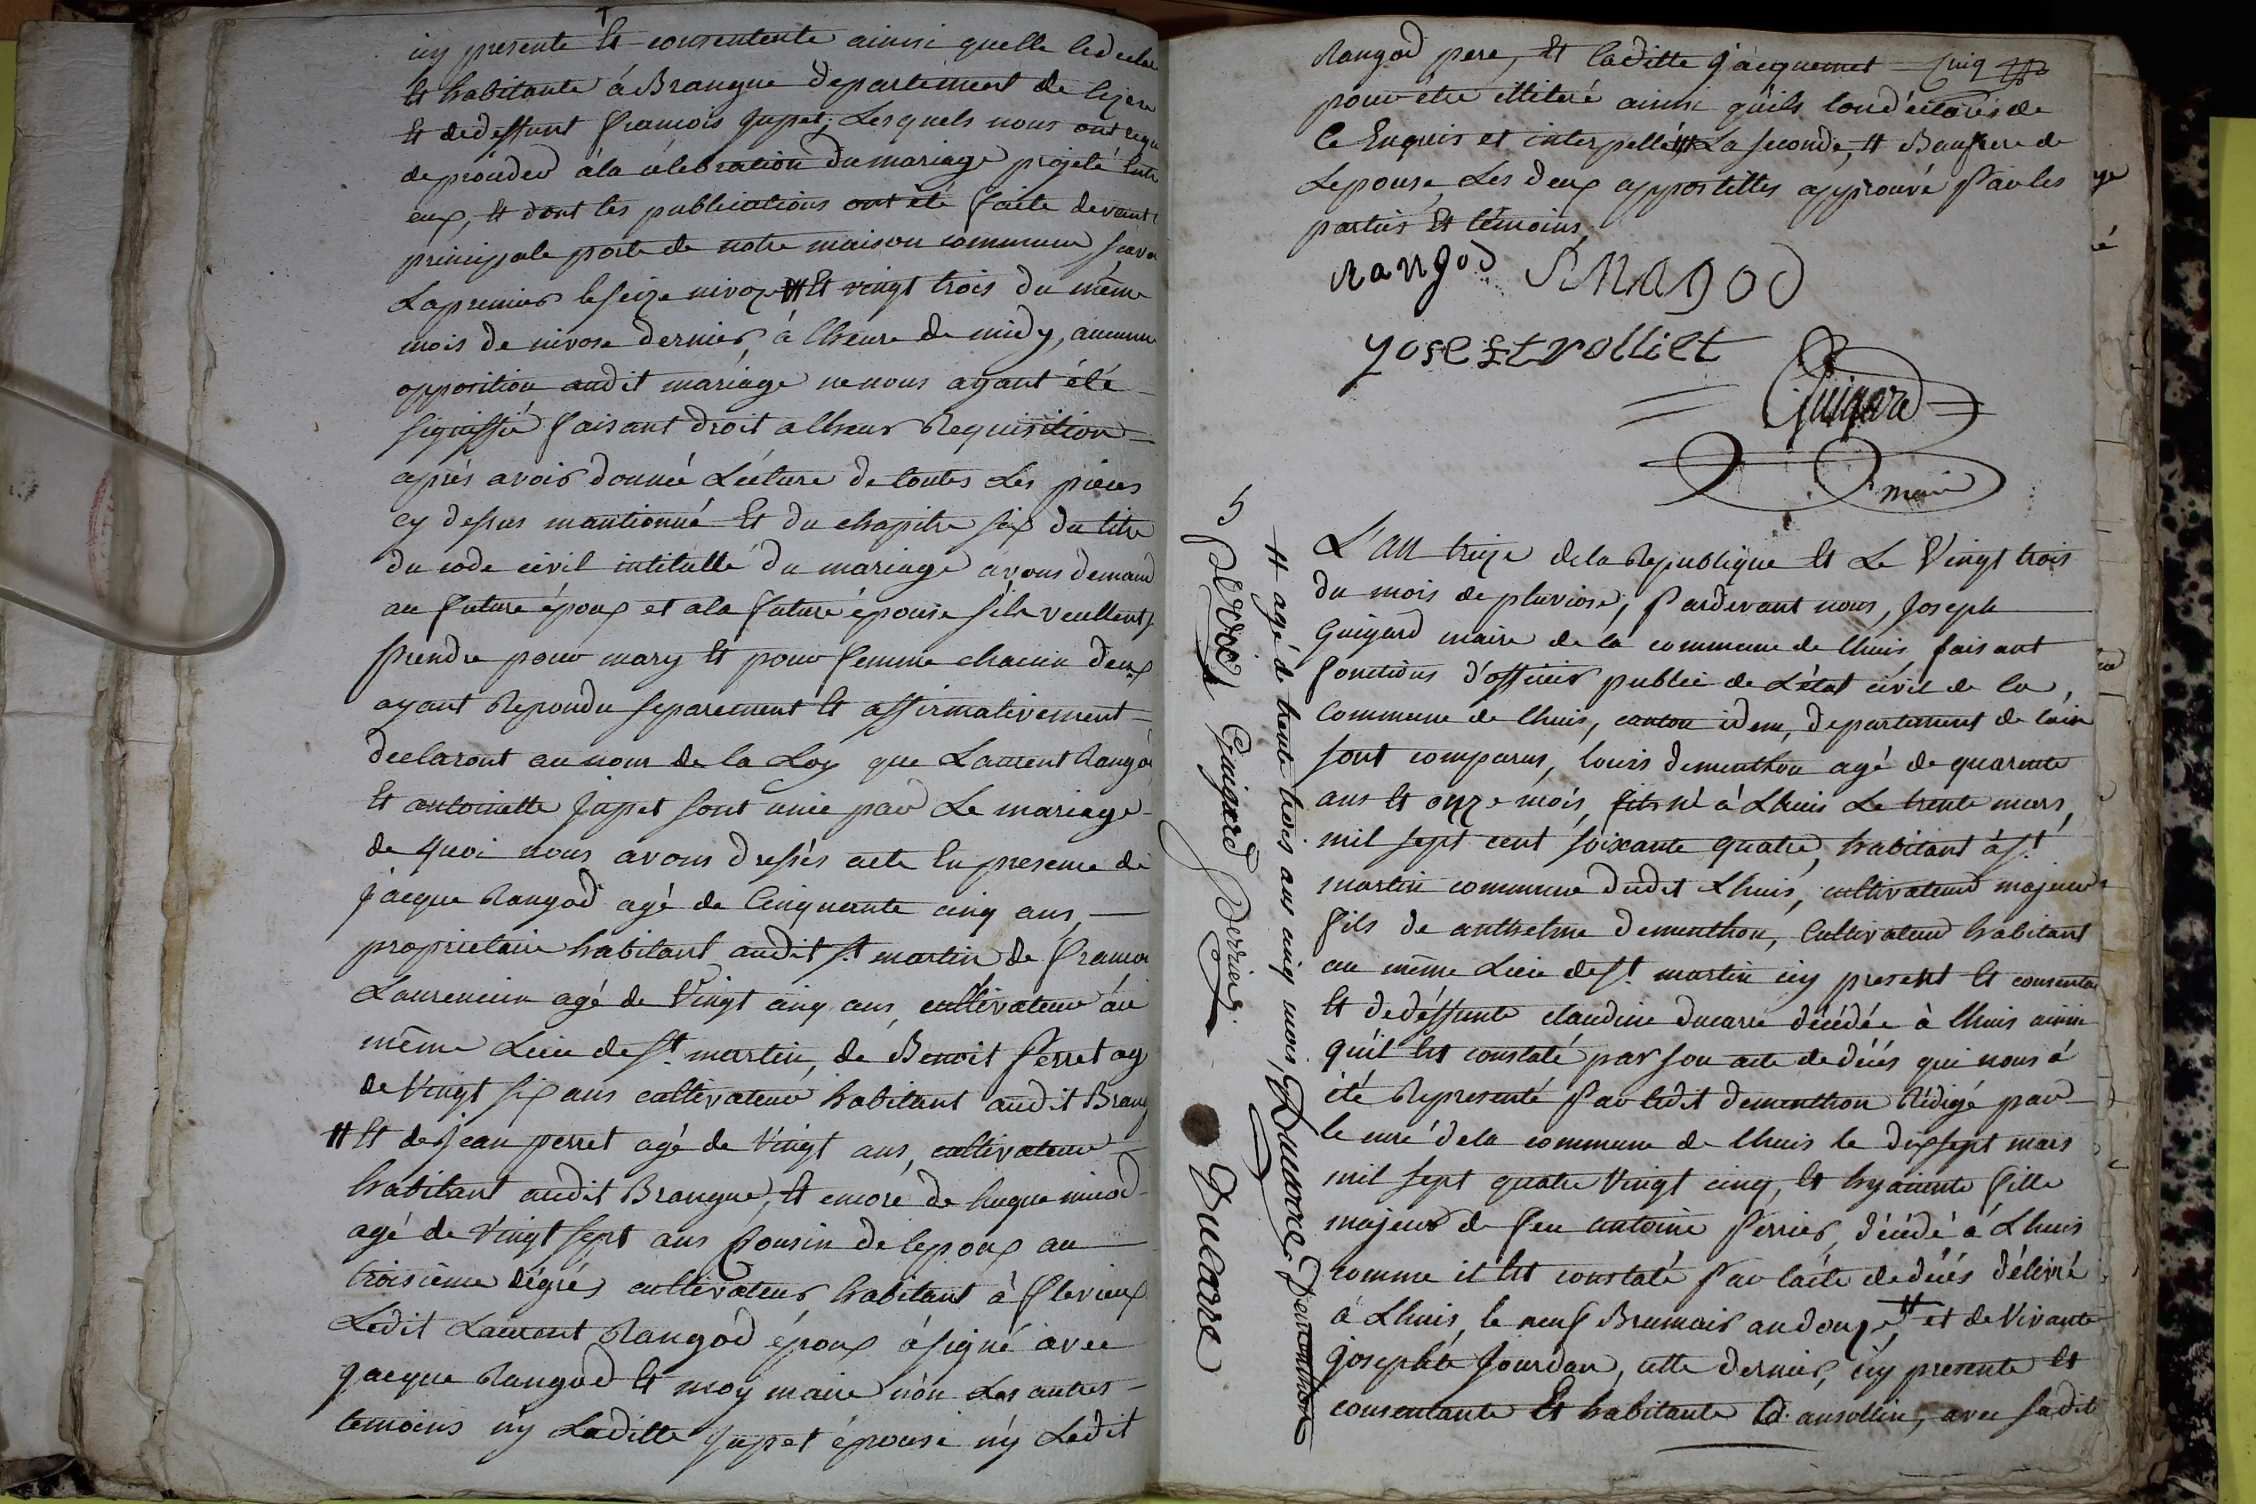 icy presente Et consentente ainsi quelle le declare
Et habitante à Brangue departement de lizere
Et dedeffunt francois Jupet, Lesquels nous ont requi
de procéder à la célébration du mariage projeté entre
eux, Et dont les publications ont été faite devant
principale porte de notre maison commune scavoir
La premier le seize nivoze Et vingt trois du même
mois de nivose dernier, à lheure de midy, aucune
opposition audit mariage ne nous ayant été
signiffié faisant droit a lheur Requisition
après avoir donnée Lecture de toutes Les pieces
cy dessus mantionné Et du chapitre six du titre
du code civil intitullé du mariage avons demandé
au future époux et a la future épouse sils veullent se
prendre pour mary Et pour femme chacun deux
ayant Repondu separement Et affirmativement
declaront au nom de la Loy que Laurent Rangod
Et antoinette Jupet sont unie par Le mariage
de quoi nous avons dressés acte En presence de
jacque Rangod agé de Cinquante cinq ans,
proprietaire habitant audit st martin de francois
Laurencin agé de Vingt cinq ans, cultivateur au
même Lieu de st martin, de Benoit Perret agé
de Vingt six ans cultivateur habitant audit Brang
# Et de jean perret agé de Vingt ans, cultivateur
habitant audit Brangue, Et encore de hugue
agé de Vingt sept ans Cousin de lepoux au
troisième dégrés cultivateur habitant à
Ledit Laurent Rangod époux à signé avec
Jacque Rangod Et moy maire non Les autres
temoins ny Laditte Jupet épouse ny Ledit
Rangod pere, Et laditte jacquemet
pour être illiteré ainsi quils lon déclarés de
Ce Enquis et interpellé # La seconde, # Baufrere de
Lepouse, Les deux appostilles approuvé Par les
parties Et témoins,
Rangod
Yosest rolliet
Guigard
maire
5
# agé de trente trois ans cinq mois, Ducarre Dementhon
Guigard Perrier
Ducare
L'an treize de la Republique Et Le Vingt trois
du mois de pluviose, Pardevant nous, Joseph
Guigard maire de la commune de lhuis faisant
fonctions d'officier public de L'état civil de la,
Commune de lhuis, canton idem, departement de lain
sont comparus, louis dementhon agé de quarente
ans Et onze mois, fils né à Lhuis Le trente mars,
mil sept cent soixante quatre, habitant à st
martin commune dudit Lhuis, cultivateur majeur
fils de anthelme dementhon, Cultivateur habitant
au même Lieu de st martin icy present Et consentant
Et dedéffunte claudine ducarre décédée à lhuis ainsi
qu'il Est constaté par son acte de décés qui nous à
été Representé Par ledit dementhon Rédigé par
le curé de la commune de lhuis le dixsept mars
mil sept quatre Vingt cinq, Et hyacinte fille
majeur de feu antoine Perrier, décédé à Lhuis
comme il Est constaté Par lacte de décés délivré
à Lhuis, le neuf Brumair an douze, # et de Vivante
Josephte Jourdan, cette dernier, icy presente Et
consentante Et habitante à ansollin, avec sadit